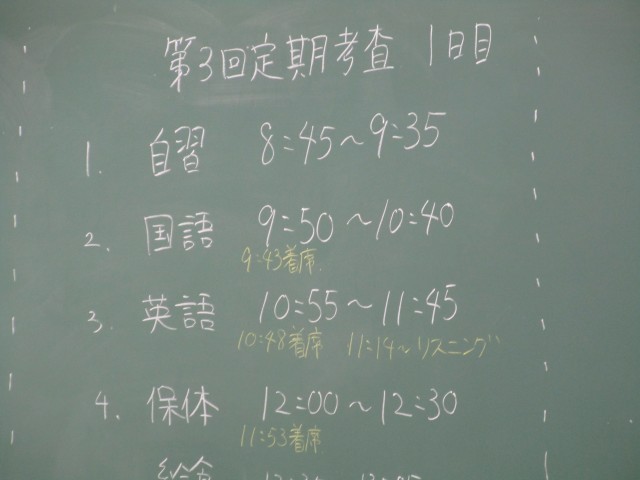 第3回定期考査 1日目
1. 自習 8:45～9:35
2. 国語 9:50～10:40
9:43着席.
3. 英語 10:55～11:45
10:48着席 11:14～リスニング
4. 保体 12:00～12:30
11:53着席